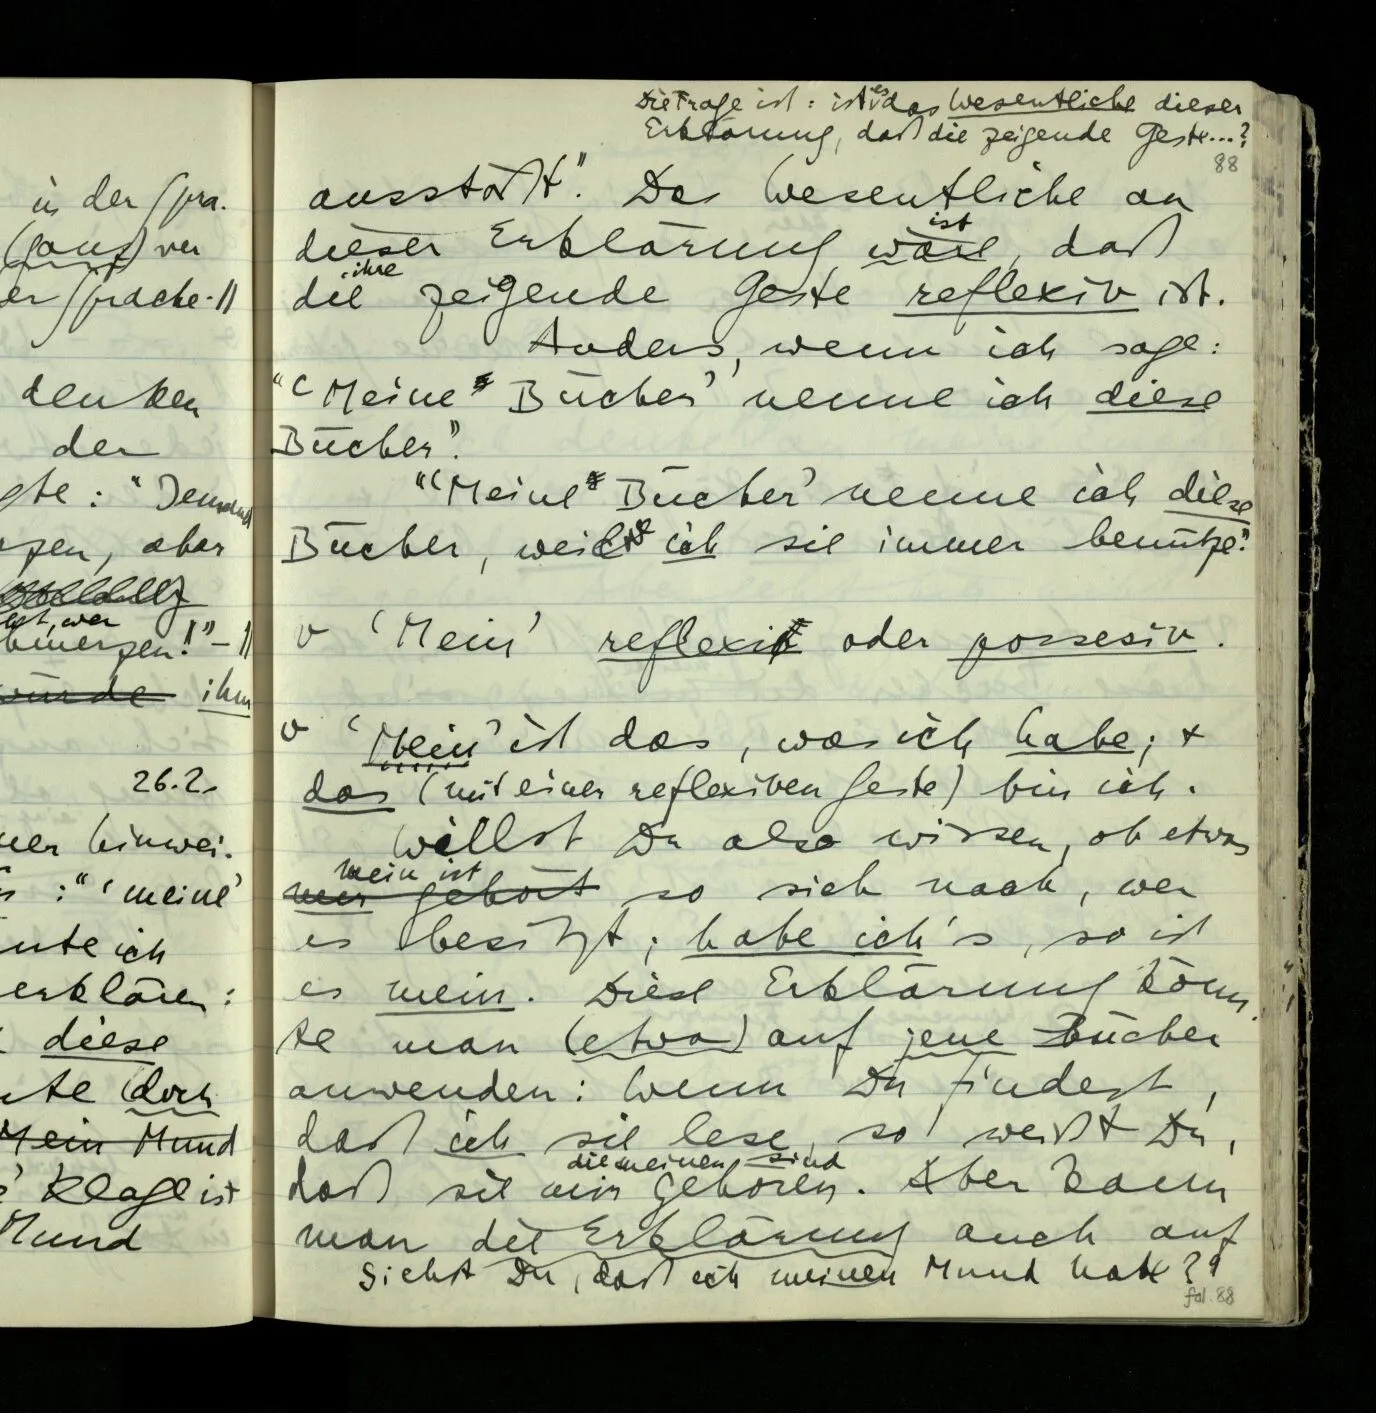 in der Spra-
(ganz) ver
er Sprache. ||
denken
der
gte: "Jemand
gen, aber
ist, wer
hmerzen!" – ||
würde ihm
26.2.
mer hinwei-
: " 'meine'
nte ich
erklären:
diese
nte doch
Mein Mund
' Klage ist
Mund
Die Frage ist: ist es das Wesentliche dieser
Erklärung, daß die zeigende Geste...?
88
ausstößt". Das Wesentliche an
ist
dieser Erklärung wäre, daß
ihre
die zeigende Geste reflexiv ist.
Anders, wenn ich sage:
"'Meine Bücher' nenne ich diese
Bücher".
"'Meine Bücher' nenne ich diese
Bücher, weil ich sie immer benütze."
v 'Mein' reflexiv oder possesiv.
v 'Mein' ist das, was ich habe; +
das (mit einer reflexiven Geste) bin ich.
Willst Du also wissen, ob etwas
mein ist
mir gehört so sieh nach, wer
es besitzt; habe ich's, so ist
es mein. Diese Erklärung könn-
te man (etwa) auf jene Bücher
anwenden: Wenn Du findest,
daß ich sie lese, so weißt Du,
die meinen sind
daß sie mir gehören. Aber kann
man die Erklärung auch auf
Siehst Du, daß ich meinen Mund habe??
fol. 88